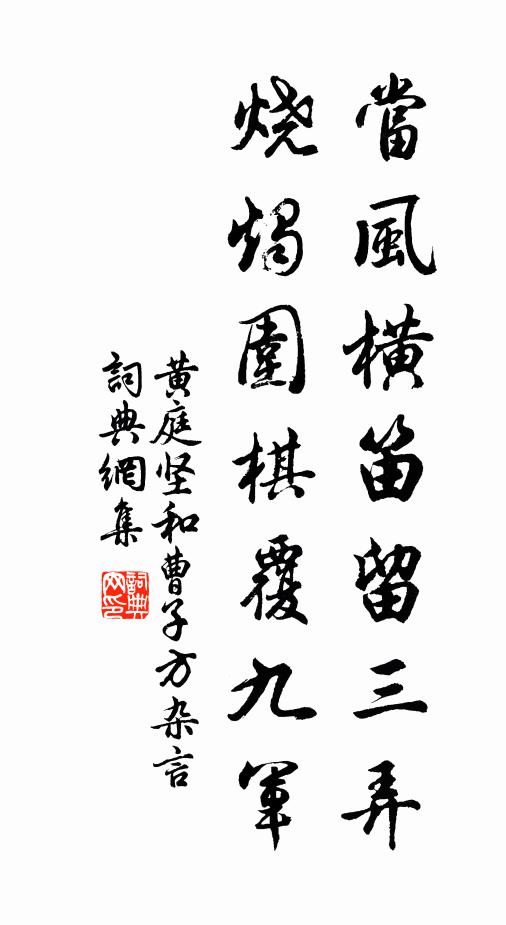 當風橫笛留三弄
烧燭圍棋覆九軍
黄庭坚和曹子方杂言
詞典網集
詞典
网印